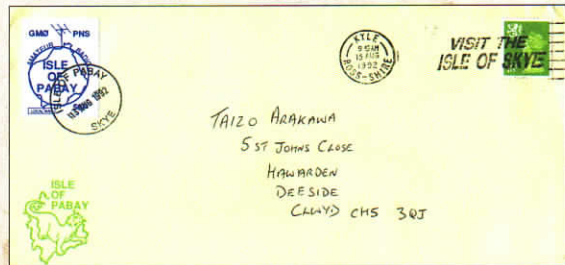 GMØ PNS
AMATEUR RADIO
ISLE
OF
PABAY
ISLE OF PABAY
AUG 1992
SKYE
KYLE
9 15AM
15 AUG
1992
ROSS-SHIRE
VISIT THE
ISLE OF SKYE
TAIZO ARAKAWA
5 ST JOHNS CLOSE
HAWARDEN
DEESIDE
CLWYD CH5 3QJ
ISLE
OF
PABAY